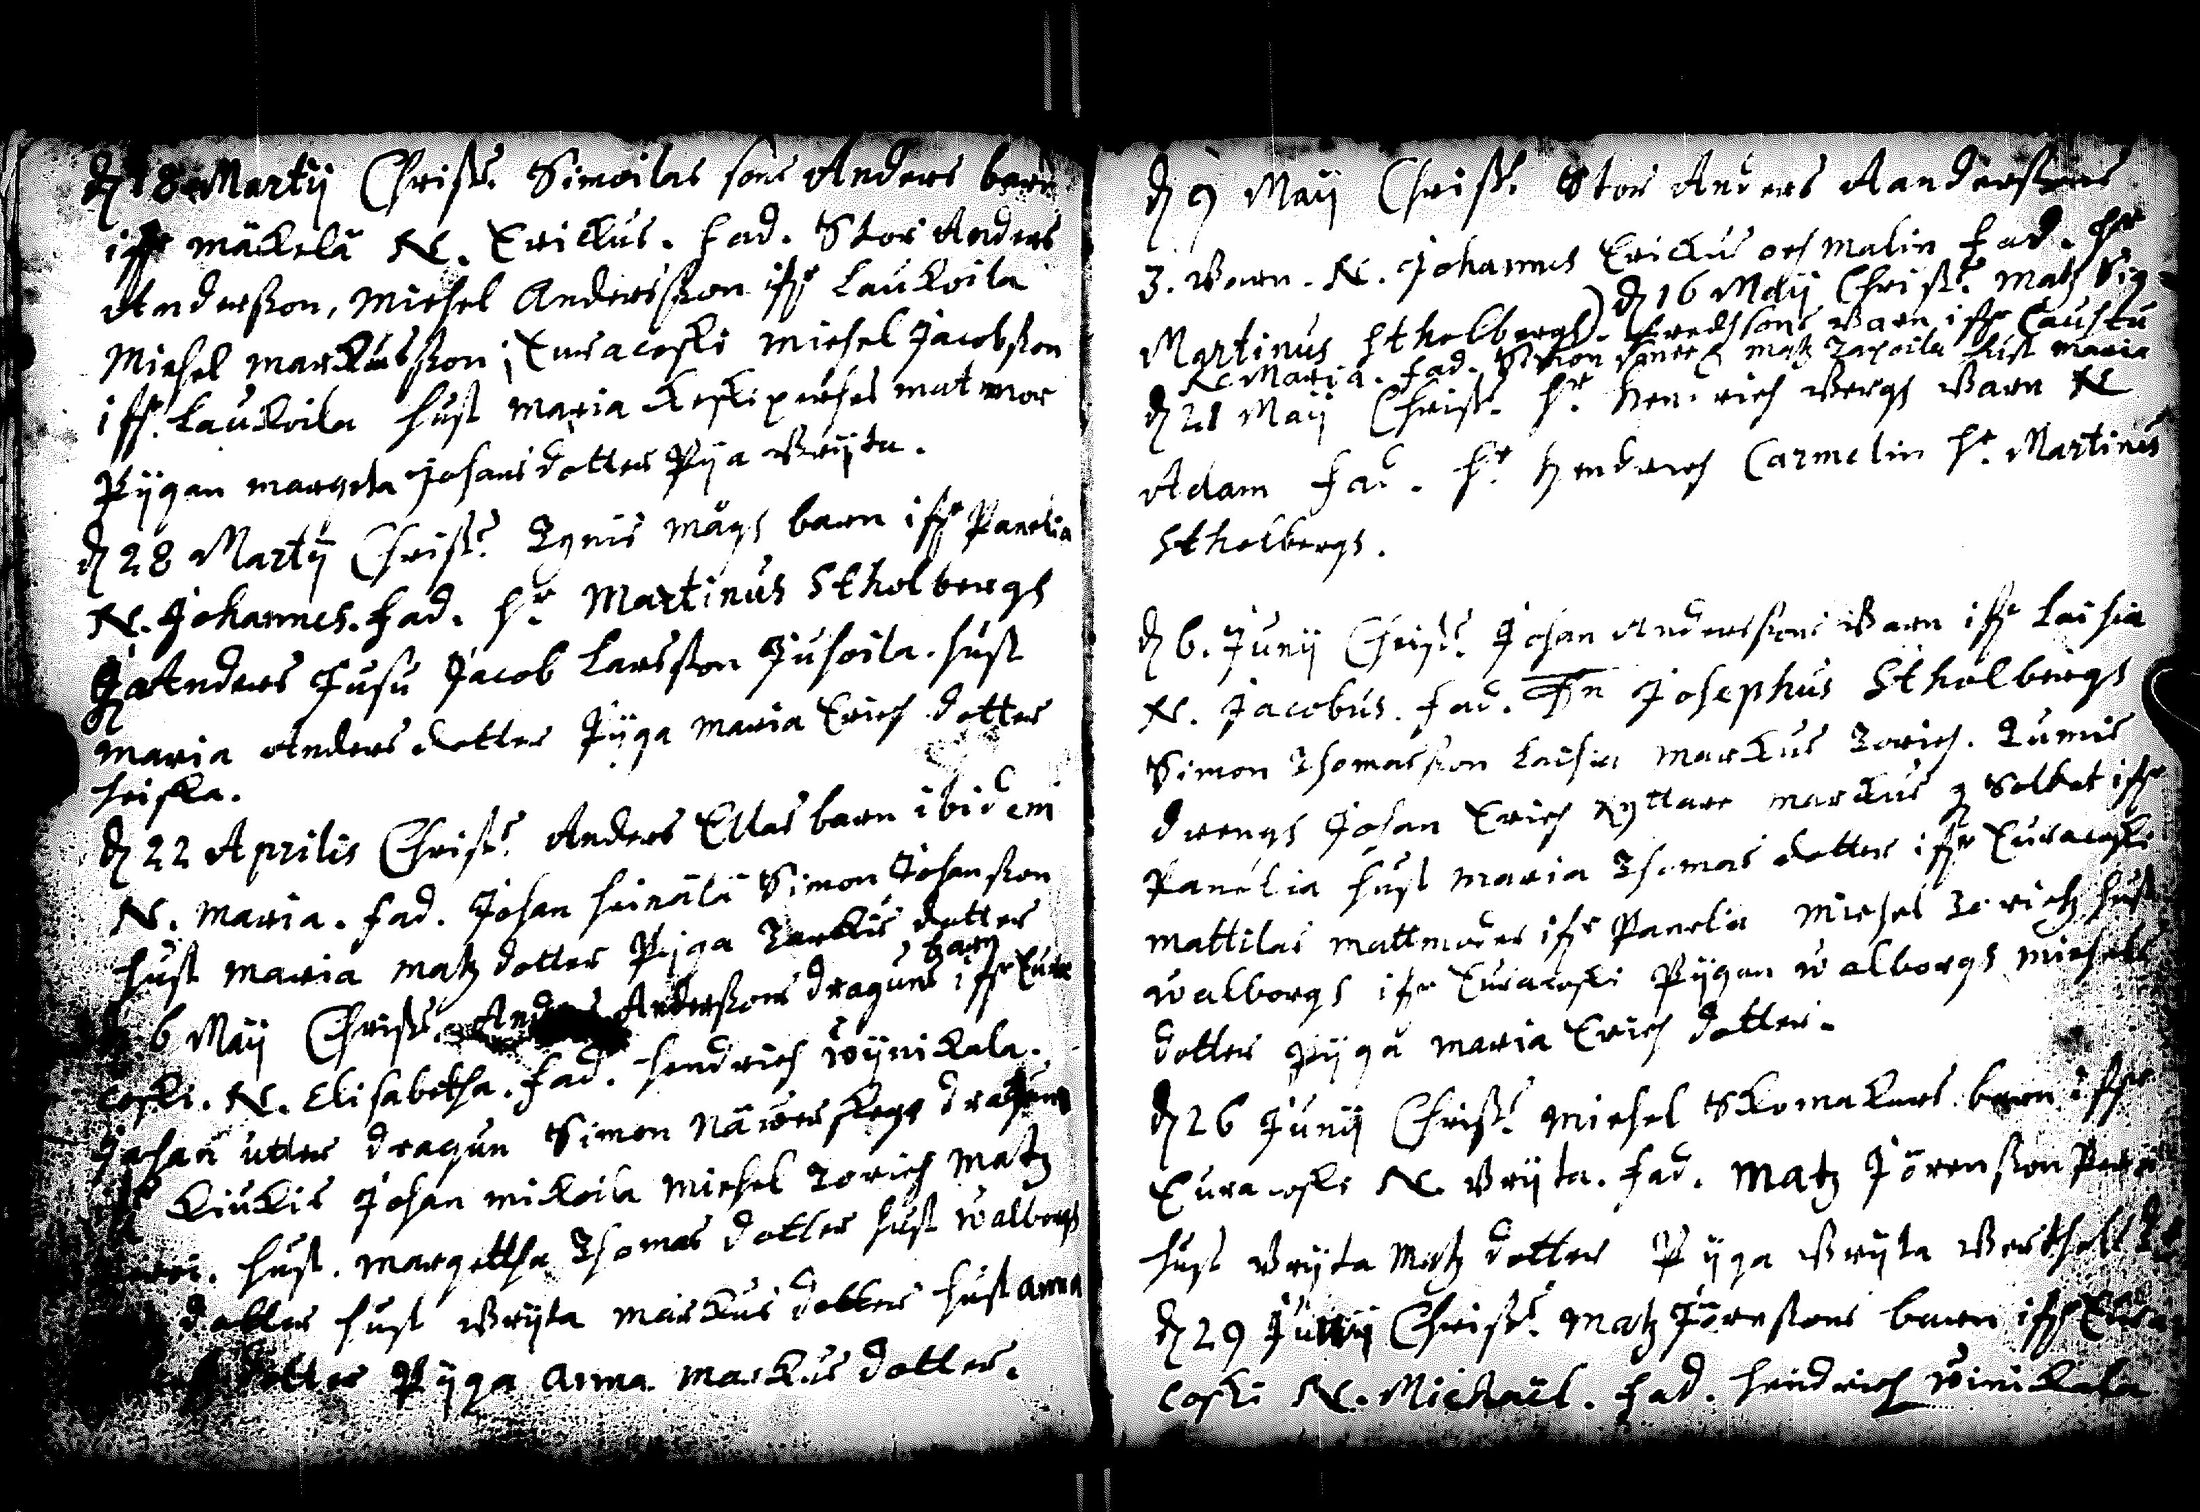 d 18 Martij Christ. Simoilas sons Anders barn
ifr mäckelä N. Erickus. fad. Stor Anders
Anderßon, michel Andersßon ifr Laukoila
Michel markusßon Euracoski michel Jacobßon
ifr. Laukoila hust maria matmor
Pijgan margeta Johans dotter Pija Brijta.
d 28 Martij Christ. barn ifr Panelia
N. Johannes. fad. hr Martinus Stholbergh
Anders Jusu Jacob Larsßon Juhoila. hust
maria Anders dotter Pijga maria Erich dotter
d 22 Aprilis Christ. Anders Ellas barn ibidem
N. maria. fad. Johan heinälä Simon Johanßon
hust maria matz dotter Pijga dotter
6 Maij Christ. Anders Anderßons draguns barn ifr Eura
coski. N. Elisabetha. fad. hendrich wijnikala.
Johan utter dragun Simon dragun
Kiukis Johan mickoila michel Zorich matz
hust. margettha Thomas dotter hust walborgh
dotter hust Brijta markus dotter hust anna
dotter Pijga anna markus dotter.
d 9 Maij Christ. Stor Anders Anderßons
3. Barn. N. Johannes Erickus och malin fad. hr
Martinus Stholbergh) d 16 Maij Christ. matz Sig-
fredhsons Barn ifr Caustu
N. Maria. fad. Simon matz hust maria
d 21 Maij Christ. hr. Hendrich Bergs Barn N
Adam fad. hr Hendrich Carmelin hr. Martinus
Stholbergh.
d 6. Junij Christ. Johan Anderssons Barn ifr Laihia
N. Jacobus. fad. Josephus Stholbergh
Simon Thomasson Laihia markus Zorich.
drengh Johan Erich Ryttare markus Soldat ifr
Panelia hust maria Thomas dotter ifr Euracoski
mattilas mattmoder ifr Panelia michel Zorichz hust
walborgh ifr Euracoski Pijgan walborgh michels
dotter Pijga maria Erich dotter.
d 26 Junij Christ. michel Skomakars barn ifr
Euracoski N. Brijta. fad. Matz Jörenßon
hust Brijta Matz dotter Pijga Brijta
d 29 Junij Christ. matz Jörenßons barn ifr Eura
coski N. Michaël. fad. hendrich winikala